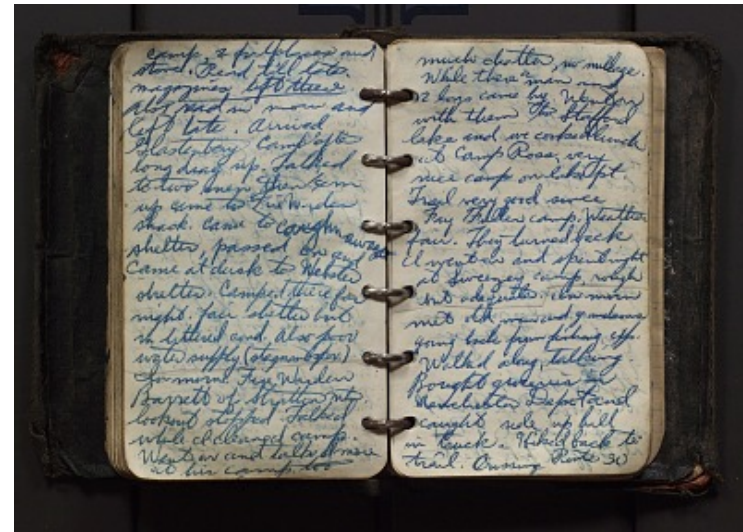 camp, 2 fireplaces and
stove. Read till late
magazines left there
also read in morn and
left late. Arrived
Glastenbury Camp after
long drag up. Talked
to two men there
up came to Fire Warden
shack. Came to Caughnawaga
shelter, passed on and
Came at dusk to Webster
shelter. Camped there for
night. Fair shelter but
in littered cond. Also poor
water supply (stagnant
In morn. Fire Warden
Barrett of Stratton Mt.
lookout stopped. Talked
while he cleaned camp.
Went on and talked more
at his camp too
much chatter, no mileage.
While there man and
2 boys came by. Went on
with them to Stratton
lake and we cooked lunch
at Camp Rose, very
nice camp on lake pt.
Trail very good since
Fay Fuller camp. Weather
fair. They turned back
I went on and spent night
at Swezey camp, rough
but adequate. In morn
met old man and grandsons
going back from fishing
Walked along, talking.
Bought groceries in
Manchester Depot and
caught ride up hill
in truck. Hiked back to
trail. Crossing Route 30